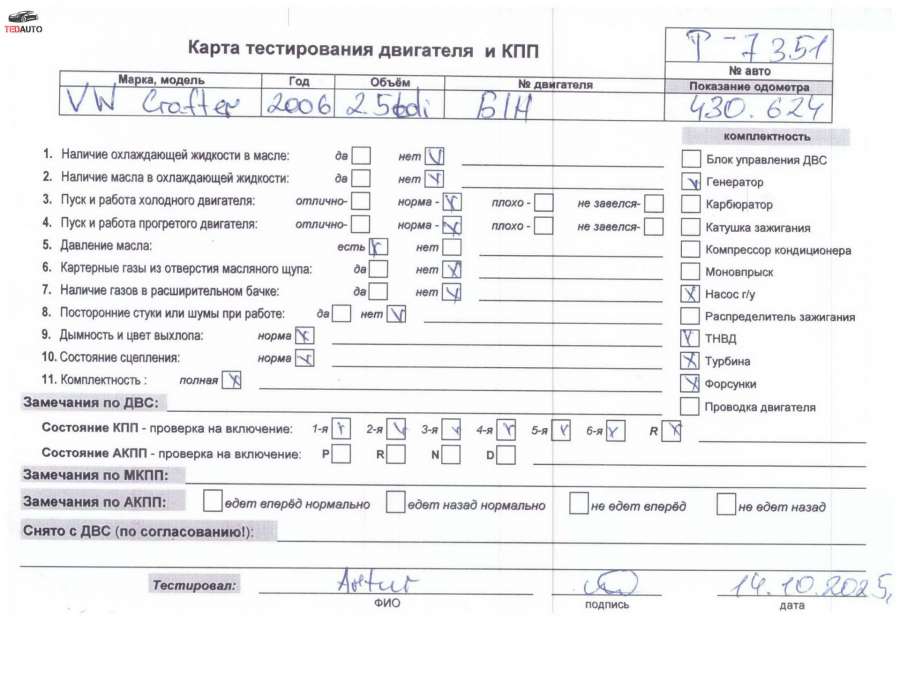 TEDAUTO
Карта тестирования двигателя и КПП
P-7351
№ авто
Марка, модель Год Объём № двигателя Показание одометра
VW Crafter 2006 2.5tdi Б/Н 430.624
комплектность
1. Наличие охлаждающей жидкости в масле: да нет V Блок управления ДВС
2. Наличие масла в охлаждающей жидкости: да нет V V Генератор
3. Пуск и работа холодного двигателя: отлично- норма - V плохо - не завелся- Карбюратор
4. Пуск и работа прогретого двигателя: отлично- норма - V плохо - не завелся- Катушка зажигания
5. Давление масла: есть V нет Компрессор кондиционера
6. Картерные газы из отверстия масляного щупа: да нет V Моновпрыск
7. Наличие газов в расширительном бачке: да нет V V Насос г/у
8. Посторонние стуки или шумы при работе: да нет V Распределитель зажигания
9. Дымность и цвет выхлопа: норма V V ТНВД
10. Состояние сцепления: норма V V Турбина
11. Комплектность : полная V V Форсунки
Замечания по ДВС: Проводка двигателя
Состояние КПП - проверка на включение: 1-я V 2-я V 3-я V 4-я V 5-я V 6-я V R V
Состояние АКПП - проверка на включение: P R N D
Замечания по МКПП:
Замечания по АКПП: едет вперёд нормально едет назад нормально не едет вперёд не едет назад
Снято с ДВС (по согласованию!):
Тестировал: Artur 14.10.2025,
ФИО подпись дата